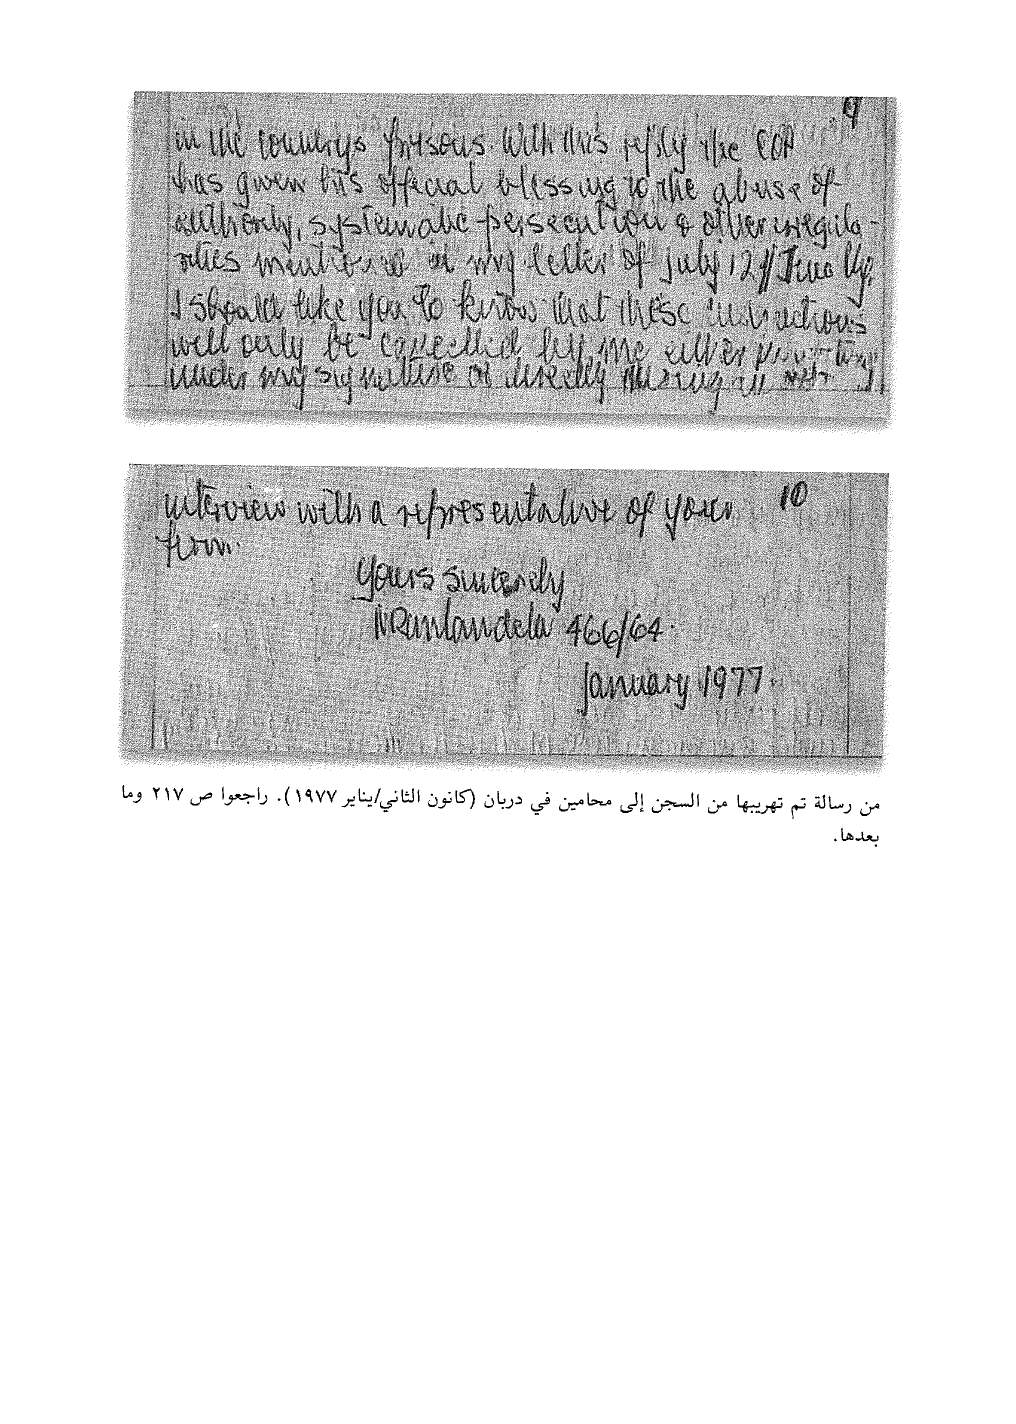 9
in the country's prisons. With this reply the COP
has given his official blessing to the abuse of
authority, systematic persecution & other irregula-
rities mentioned in my letter of July 12// Finally,
I should like you to know that these instructions
will only be cancelled by me either
under my signature or directly during an
10
interview with a representative of your
firm.
Yours sincerely
NRMandela 466/64.
January 1977.
من رسالة تم تهريبها من السجن إلى محامين في دربان (كانون الثاني/يناير ١٩٧٧). راجعوا ص ٢١٧ وما
بعدها.